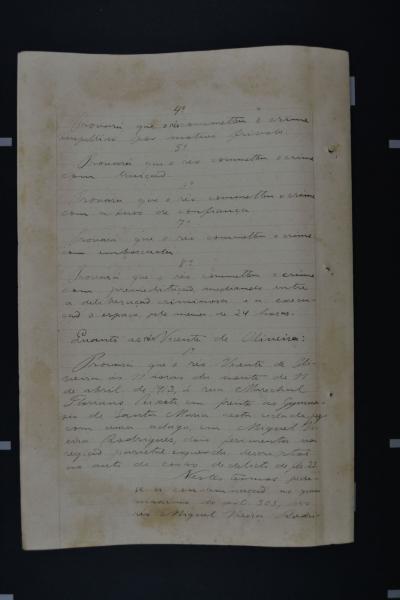 4º
Provará que o réo commetteu o crime
impellido por motivo frivolo.
5º
Provará que o réo commetteu o crime
com traição.
6º
Provará que o réo commetteu o crime
com abuso de confiança
7º
Provará que o réo commetteu o crime
com emboscada
8º
Provará que o réo commetteu o crime
com premeditação mediando entre
a deliberação criminosa e a execu-
ção o espaço pelo menos de 24 horas.
Quanto ao réo Vicente de Oliveira:
Provará que o réo Vicente de Oli-
veira as 11 horas da noite de 11
de abril de 1913, á rua Marechal
Floriano Peixoto em frente ao Gymna-
sio de Santa Maria nesta cidade, fez
com uma adaga, em Miguel Vi-
eira Rodrigues, dois ferimentos na
região parietal esquerda descriptos
no auto de corpo de delicto de fls 23.
Nestes termos pede-
se a condemnação no grau
maximo do art. 303, do
réo Miguel Vieira Rodri-